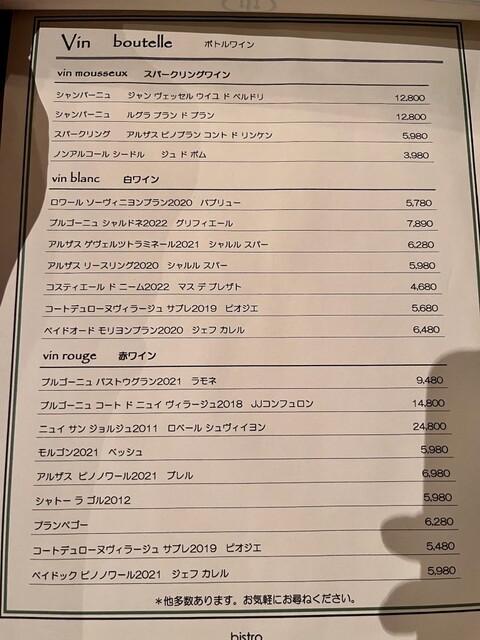 Vin boutelle ボトルワイン
vin mousseux スパークリングワイン
シャンパーニュ ジャン ヴェッセル ウイユ ド ペルドリ 12,800
シャンパーニュ ルグラ ブラン ド ブラン 12,800
スパークリング アルザス ピノブラン コント ド リンケン 5,980
ノンアルコール シードル ジュ ド ポム 3,980
vin blanc 白ワイン
ロワール ソーヴィニヨンブラン2020 パブリュー 5,780
ブルゴーニュ シャルドネ2022 グリフィエール 7,890
アルザス ゲヴェルツトラミネール2021 シャルル スパー 6,280
アルザス リースリング2020 シャルル スパー 5,980
コスティエール ド ニーム2022 マス デ ブレザト 4,680
コートデュローヌヴィラージュ サブレ2019 ピオジエ 5,680
ペイドオード モリヨンブラン2020 ジェフ カレル 6,480
vin rouge 赤ワイン
ブルゴーニュ パストウグラン2021 ラモネ 9,480
ブルゴーニュ コート ド ニュイ ヴィラージュ2018 JJコンフュロン 14,800
ニュイ サン ジョルジュ2011 ロベール シュヴィイヨン 24,800
モルゴン2021 ペッシュ 5,980
アルザス ピノノワール2021 ブレル 6,980
シャトー ラ ゴル2012 5,980
ブランペゴー 6,280
コートデュローヌヴィラージュ サブレ2019 ピオジエ 5,480
ペイドック ピノノワール2021 ジェフ カレル 5,980
*他多数あります。お気軽にお尋ねください。
bistro